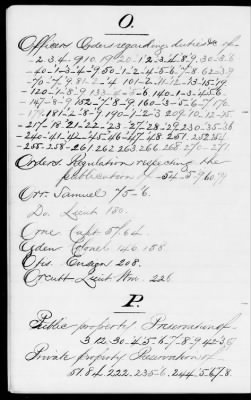 O.
Officers Orders regarding duties &c of
- 2. 3. 4. 9. 10. 19. 20 - 1. 2. 3. 4. 8. 9. 30. 3. 6
- 40 - 1 - 3 - 4 - 9. 50 - 1 - 2 - 4 - 5 - 6 - 7 - 8. 62 - 3. 9
- 70 - 7 - 9. 81 - 2 - 4. 101 - 2 - 11 - 12 - 13 - 15 - 19
- 120 - 1 - 8 - 9. 133 - 4 - 5 - 6. 140 - 1 - 3 - 4 - 5 - 6
- 147 - 8 - 9. 152 - 7 - 8 - 9. 160 - 3 - 5 - 6 - 7. 176
181 - 2 - 8 - 9. 190 - 1 - 2 - 3. 209. 10. 12 - 15
- 217. 18. 21 - 22 - 23 - 27. 28 - 29. 230. 35 - 36
- 240 - 41 - 42 - 45 - 46 - 47. 48. 251. 252
- 255 - 258 - 261. 262. 263. 266. 268. 270 - 271.
Orders Regulation respecting the
publication of - 54 - 5. 9. 60,
Orr. Samuel 75 - 6.
Do. Lieut 180.
Orne Capt 57. 64.
Ogden Colonel 146. 158.
Ensign 208.
Orcutt Lieut Wm. 226
P.
Public property Preservation of
3. 12. 30 - 4. 5 - 6 - 7 - 8. 9. 42 - 3.
Private property Preservation of
57. 84. 222. 235 - 6. 244. 5 - 67. 8.